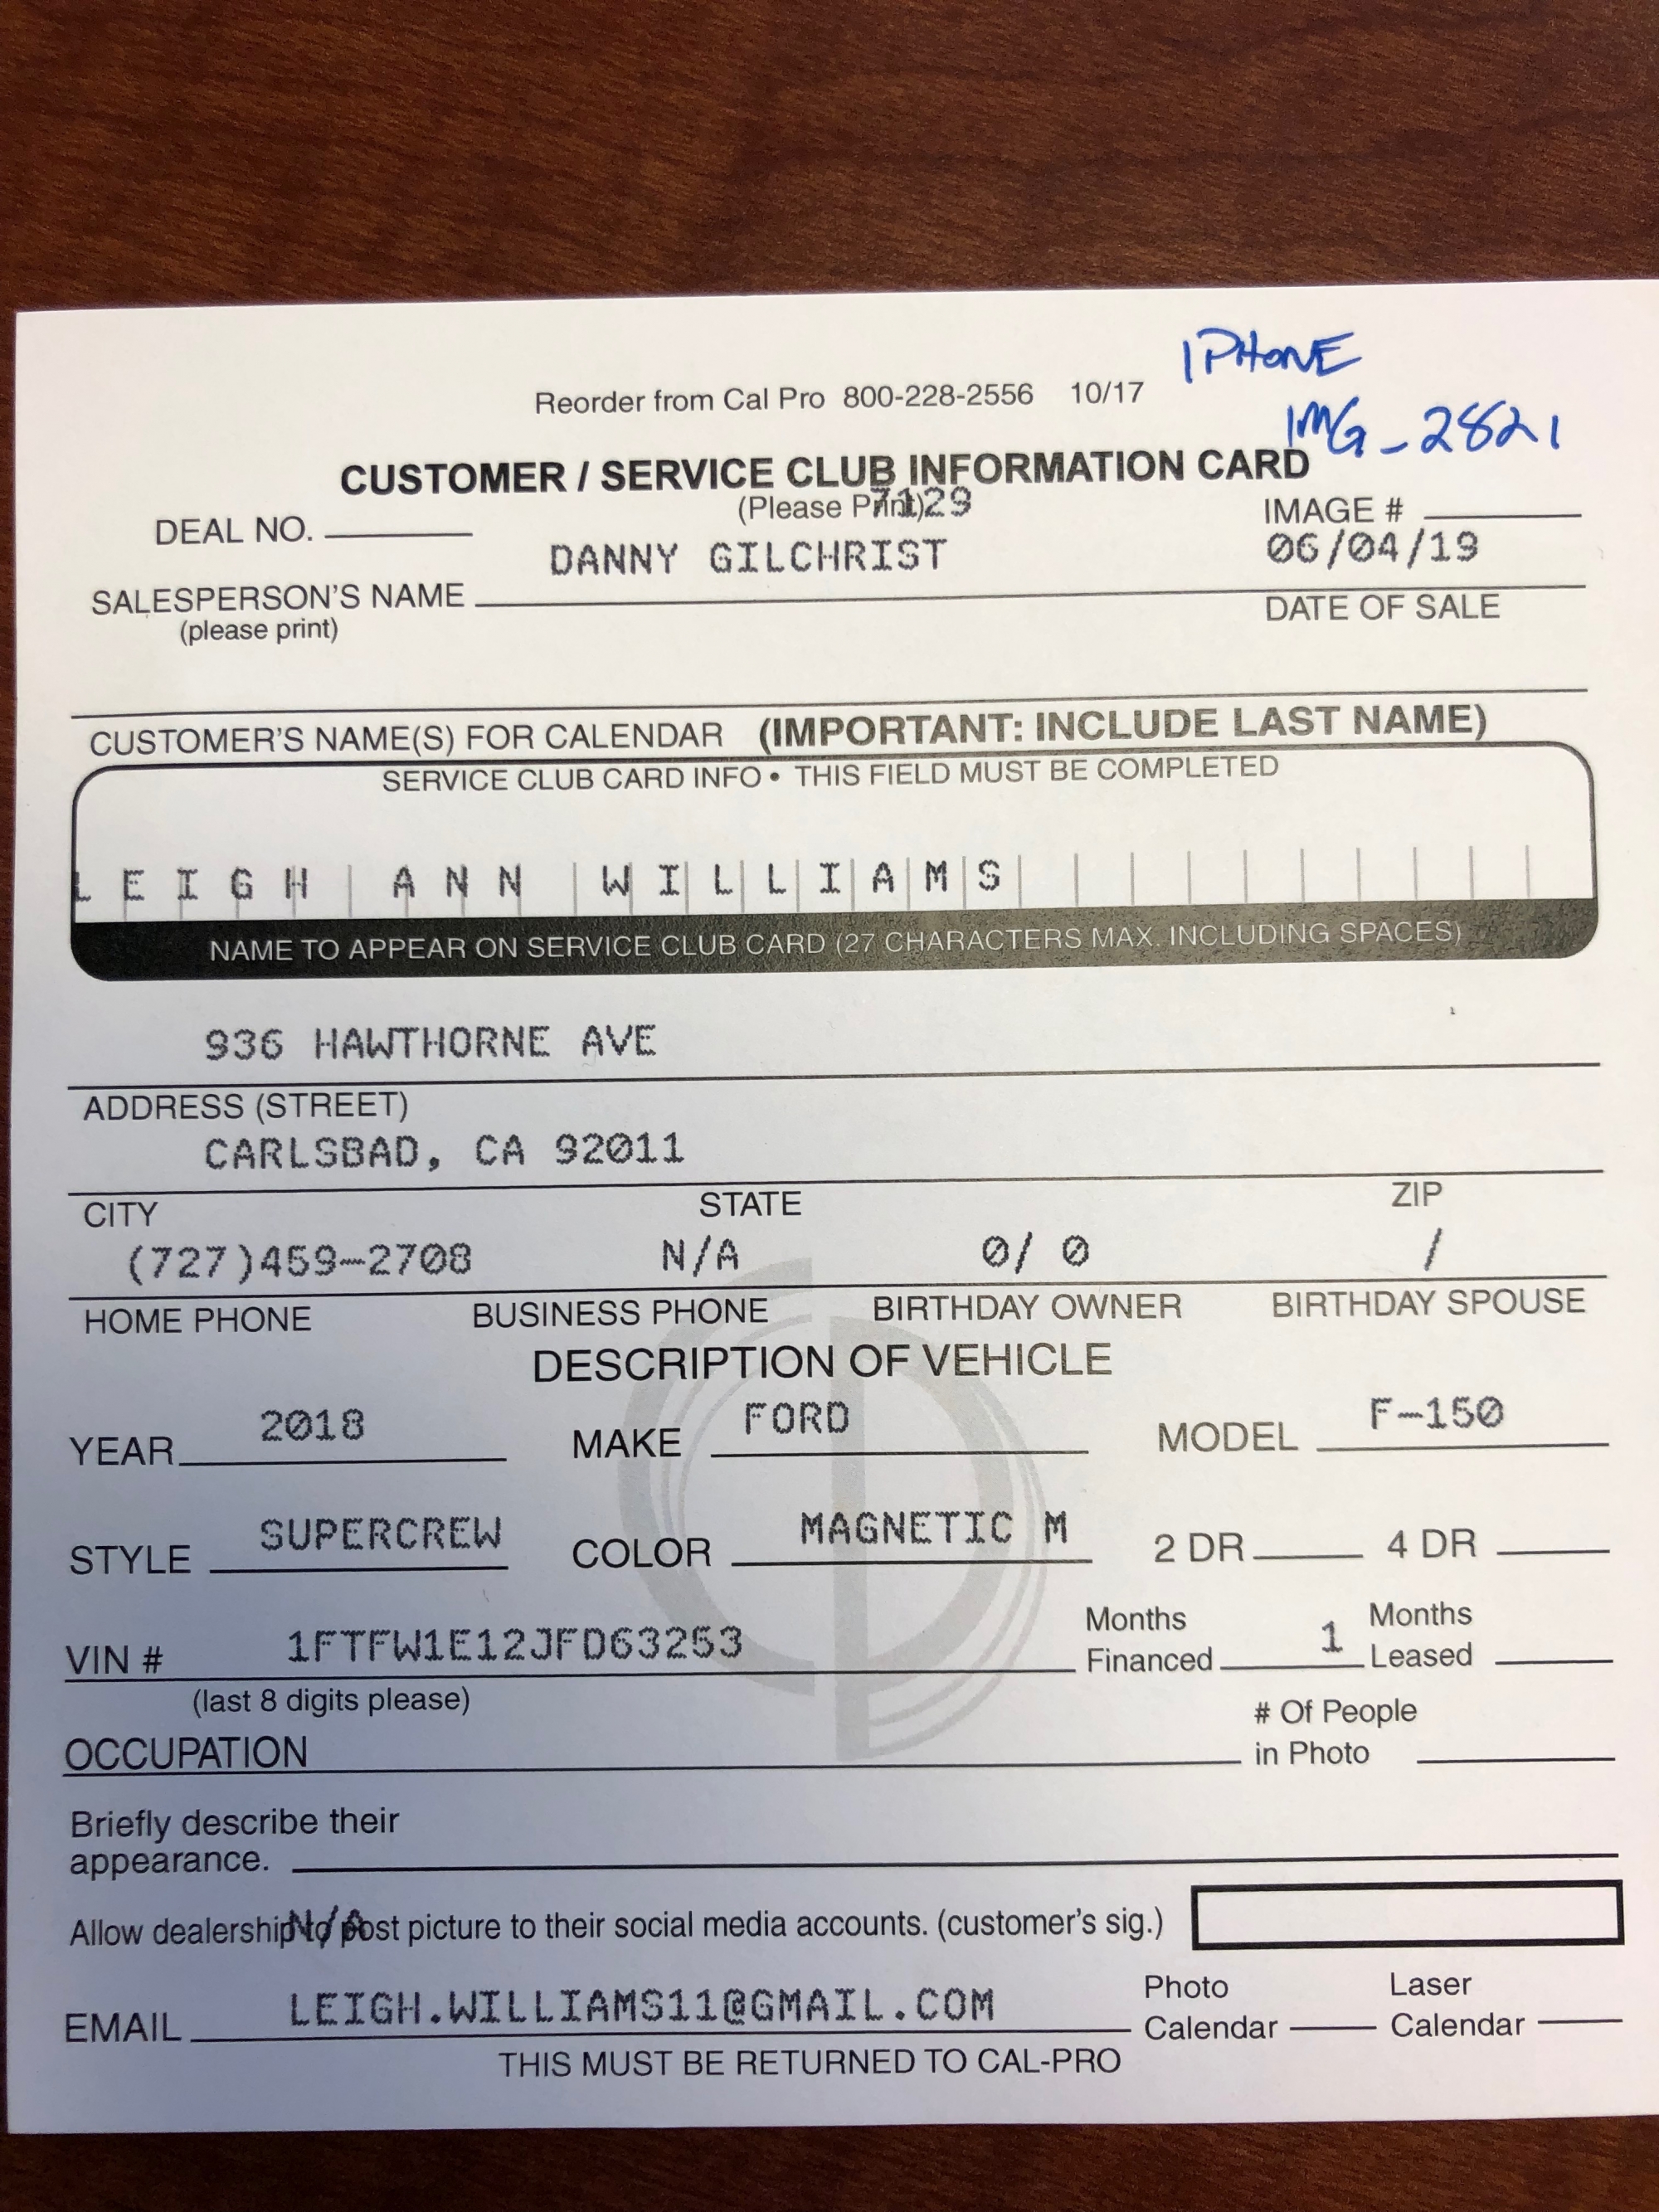 IPHONE
Reorder from Cal Pro 800-228-2556 10/17
IMG_2821
CUSTOMER / SERVICE CLUB INFORMATION CARD
(Please Print) 7129
DEAL NO. IMAGE #
DANNY GILCHRIST 06/04/19
SALESPERSON'S NAME DATE OF SALE
(please print)
CUSTOMER'S NAME(S) FOR CALENDAR (IMPORTANT: INCLUDE LAST NAME)
SERVICE CLUB CARD INFO • THIS FIELD MUST BE COMPLETED
LEIGH ANN WILLIAMS
NAME TO APPEAR ON SERVICE CLUB CARD (27 CHARACTERS MAX. INCLUDING SPACES)
936 HAWTHORNE AVE
ADDRESS (STREET)
CARLSBAD, CA 92011
CITY STATE ZIP
(727)459-2708 N/A 0/ 0 /
HOME PHONE BUSINESS PHONE BIRTHDAY OWNER BIRTHDAY SPOUSE
DESCRIPTION OF VEHICLE
YEAR 2018 MAKE FORD MODEL F-150
STYLE SUPERCREW COLOR MAGNETIC M 2 DR 4 DR
VIN # 1FTFW1E12JFD63253 Months Financed 1 Months Leased
(last 8 digits please)
OCCUPATION # Of People in Photo
Briefly describe their
appearance.
N/A
Allow dealership to post picture to their social media accounts. (customer's sig.)
EMAIL LEIGH.WILLIAMS11@GMAIL.COM Photo Calendar Laser Calendar
THIS MUST BE RETURNED TO CAL-PRO